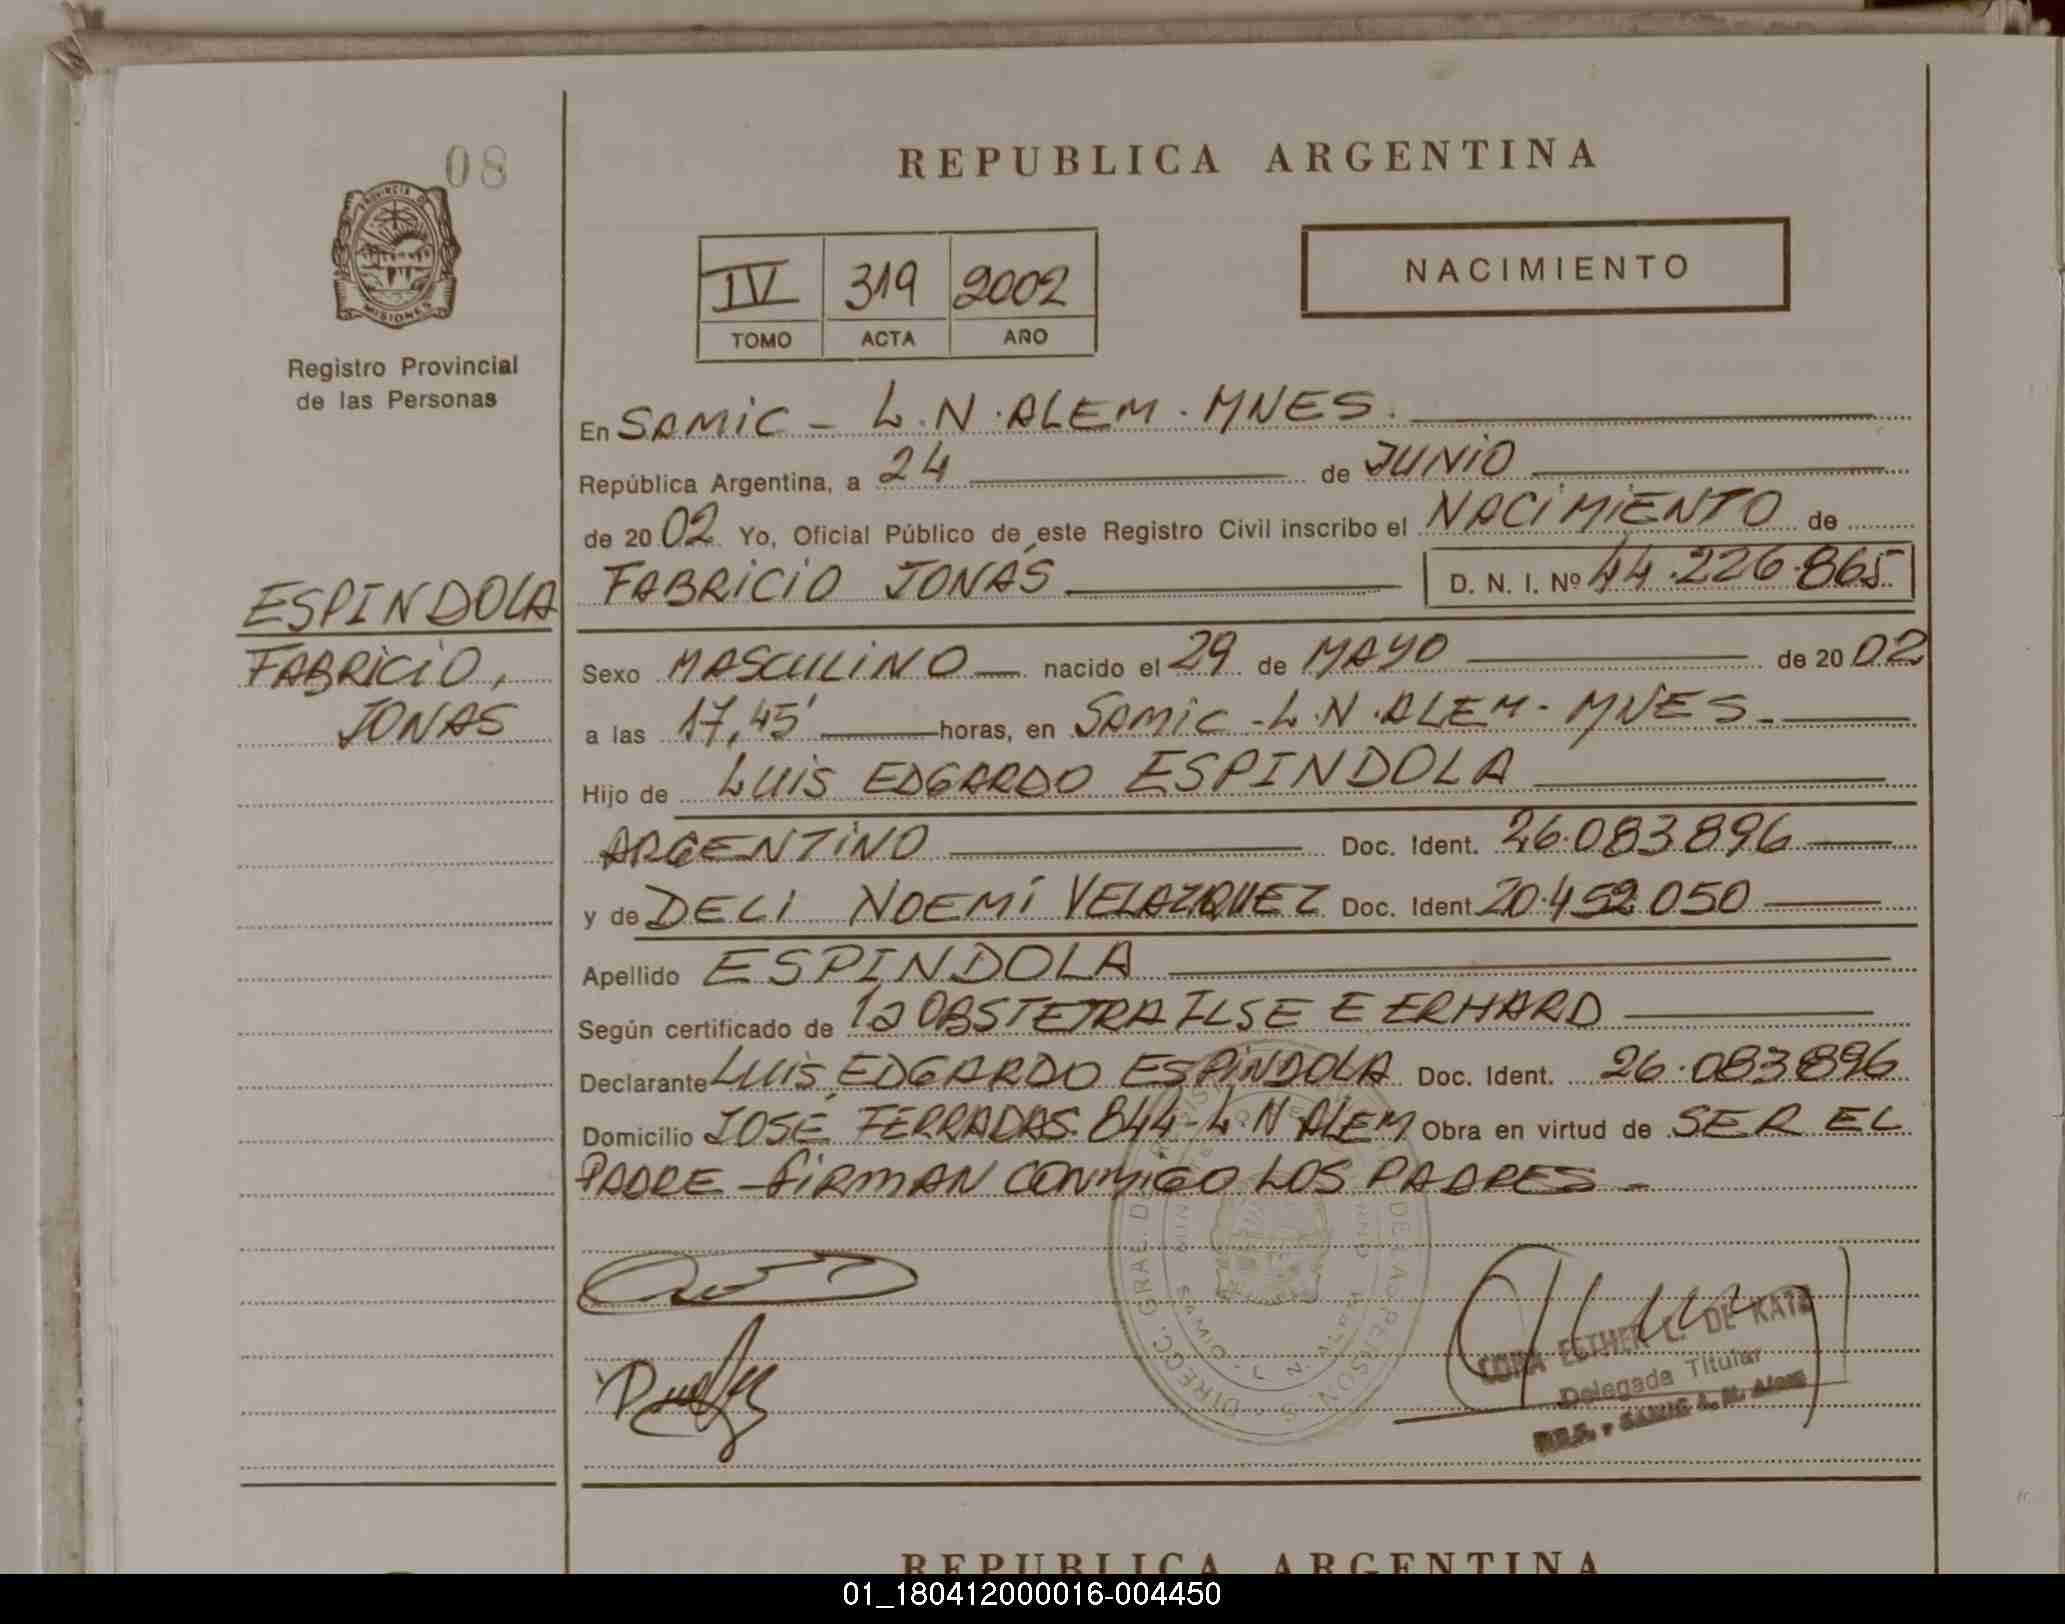 08
PROVINCIA DE
MISIONES
Registro Provincial
de las Personas
REPUBLICA ARGENTINA
IV 319 2002
TOMO ACTA AÑO
NACIMIENTO
En SAMIC - L.N.ALEM. MNES.
República Argentina, a 24 de JUNIO
de 2002 Yo, Oficial Público de este Registro Civil inscribo el NACIMIENTO de
FABRICIO JONÁS D. N. I. Nº 44.226.865
ESPINDOLA
FABRICIO,
JONAS
Sexo MASCULINO nacido el 29 de MAYO de 2002
a las 17,45' horas, en SAMIC - L.N.ALEM - MNES.
Hijo de LUIS EDGARDO ESPINDOLA
ARGENTINO Doc. Ident. 26.083.896
y de DELI NOEMÍ VELAZQUEZ Doc. Ident 20.452.050
Apellido ESPINDOLA
Según certificado de la OBSTETRA ILSE E ERHARD
Declarante LUIS EDGARDO ESPINDOLA Doc. Ident. 26.083896
Domicilio JOSÉ FERRADAS 844-L.N ALEM Obra en virtud de SER EL
PADRE - FIRMAN CONMIGO LOS PADRES -
CORA ESTHER L. DE KATZ
Delegada Titular
SAMIC L. N. Alem
REPUBLICA ARGENTINA
01_180412000016-004450